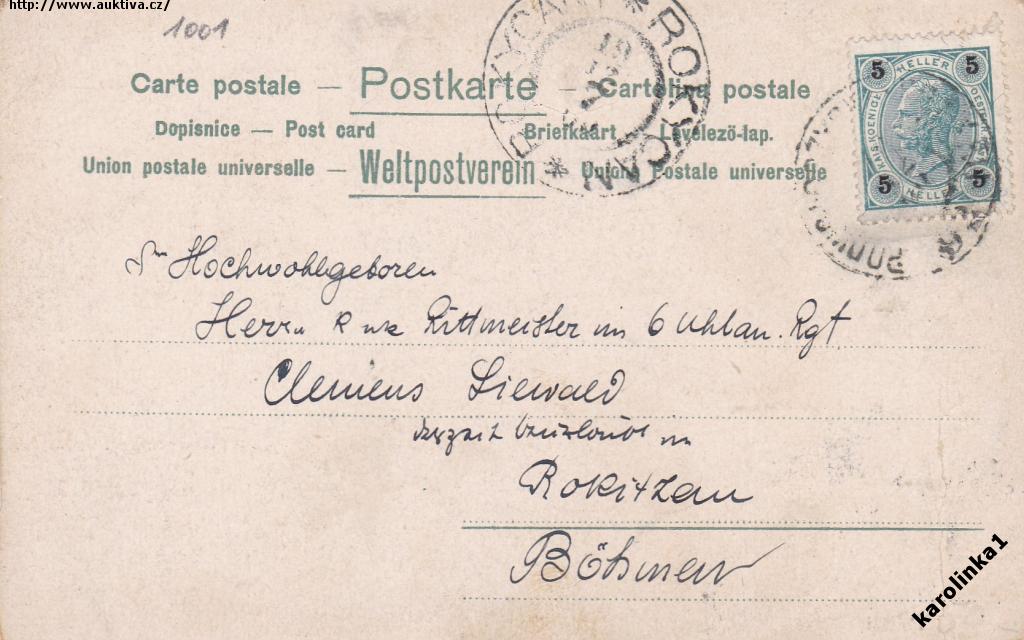 http://www.auktiva.cz/
1001
ROKYCANY * ROKYCANY *
Carte postale — Postkarte — Cartolina postale
Dopisnice — Post card Briefkaart — Levelező-lap.
Union postale universelle — Weltpostverein — Union postale universelle
5 HELLER 5
5 HELLER 5
Sr Hochwohlgeboren
Herrn K uk Rittmeister im 6 Uhlan. Rgt
Clemens Siewald
derzeit beurlaubt in
Rokitzau
Böhmen
karolinka1